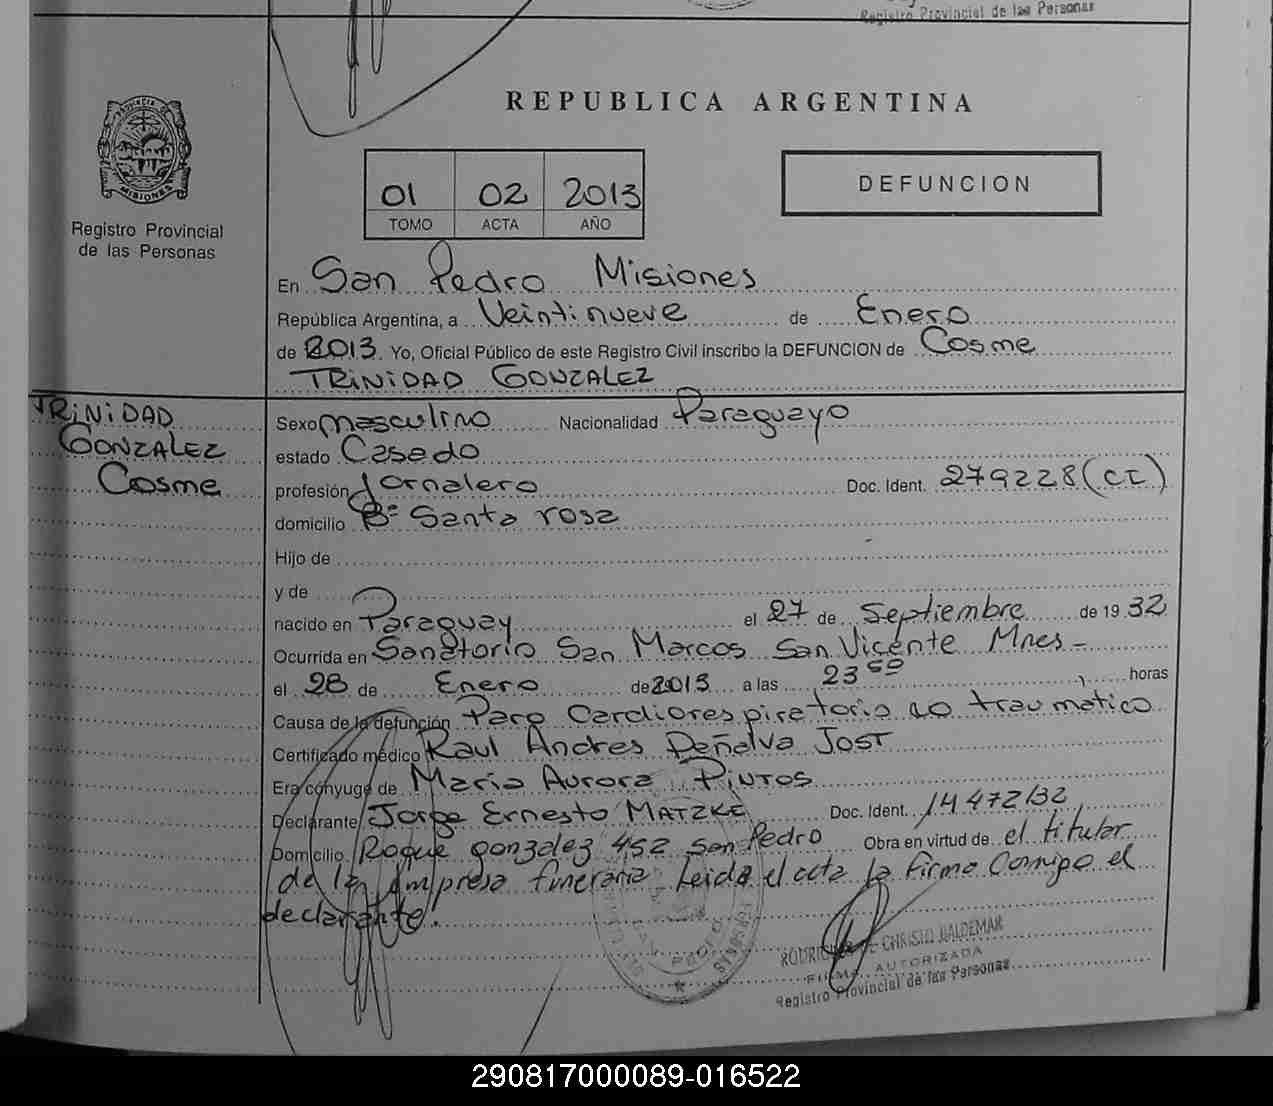 Registro Provincial de las Personas
REPUBLICA ARGENTINA
PROVINCIA DE
MISIONES
Registro Provincial
de las Personas
01 02 2013
TOMO ACTA AÑO
DEFUNCION
En San Pedro Misiones
República Argentina, a Veintinueve de Enero
de 2013. Yo, Oficial Público de este Registro Civil inscribo la DEFUNCION de Cosme
TRINIDAD GONZALEZ
TRINIDAD
GONZALEZ
Cosme
Sexo masculino Nacionalidad Paraguayo
estado Casado
profesión Jornalero Doc. Ident. 279228 (CI)
domicilio Bº Santa rosa
Hijo de
y de
nacido en Paraguay el 27 de Septiembre de 1932
Ocurrida en Sanatorio San Marcos San Vicente Mnes-
el 28 de Enero de 2013 a las 23 50 horas
Causa de la defunción Paro Cardiorespiratorio no traumatico
Certificado médico Raul Andres Peñalva JOST
Era cónyuge de Maria Aurora PINTOS
Declarante Jorge Ernesto MATZKE Doc. Ident. 14472132
Domicilio Roque gonzalez 452 San Pedro Obra en virtud de el titular
de la Empresa funeraria Leida el acta la firma Conmigo el
declarante.
SAN PEDRO
CHRISTO BALDEMAR
FIRMA AUTORIZADA
Registro Provincial de las Personas
290817000089-016522